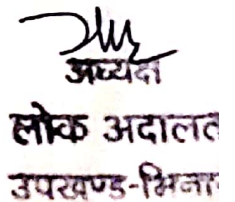 अध्यक्ष
लोक अदालत
उपखण्ड-भिना